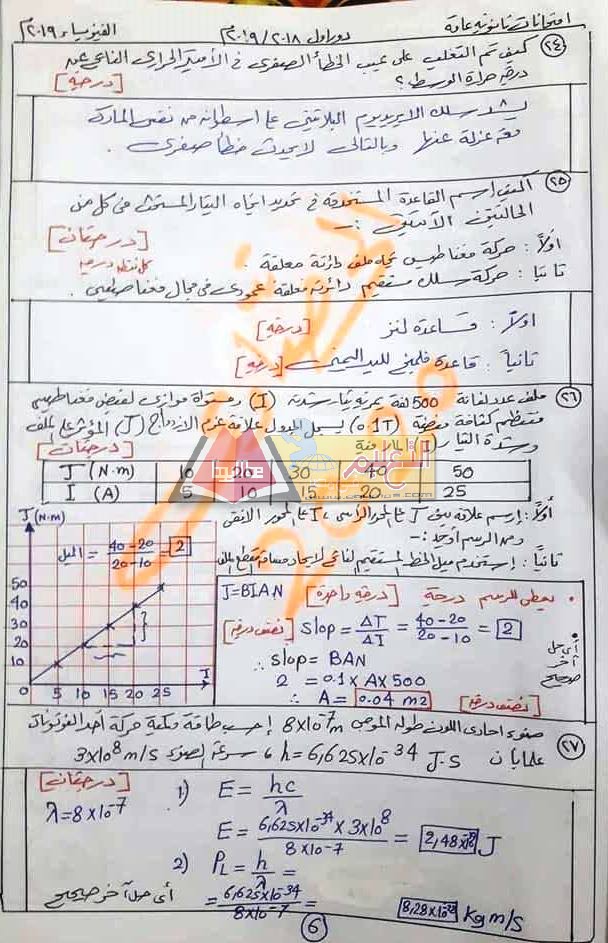 امتحانات ثانوية عامة دور اول ٢٠١٨/٢٠١٩م الفيزياء ٢٠١٩م
٢٤ كيف تم التغلب على عيب الخطأ الصفرى فى الأميتر الحرارى الناتج عن
درجة حرارة الوسط ؟ [درجة]
يشد سلك الايريديوم البلاتينى على اسطوانة من نفس المادة
مع عزله عنها وبالتالى لا يحدث خطأ صفرى .
٢٥ اكتب اسم القاعدة المستخدمة فى تحديد اتجاه التيار المستحث فى كل من
الحالتين الآتيتين :- [درجتان]
اولاً : حركة مغناطيس تجاه ملف دائرته مغلقة .
ثانيا : حركة سلك مستقيم دائرته مغلقة عمودى فى مجال مغناطيسى .
اولاً : قاعدة لنز [درجة]
ثانياً : قاعدة فلمنج لليد اليمنى [درجة]
٢٦ ملف عدد لفاته 500 لفة يمر به تيار شدته (I) ومستواه موازى لفيض مغناطيسى
منتظم كثافة فيضه (0.1T) يسجل الجدول علاقة عزم الازدواج (J) المؤثر على الملف
وشدة التيار (I) المار فيه [درجتان]
J (N.m) 10 20 30 40 50
I (A) 5 10 15 20 25
أولاً : إرسم علاقة بين J على المحور الرأسى ، I على المحور الافقى
ومن الرسم أوجد :-
ثانياً : إستخدم ميل الخط المستقيم الناتج لايجاد مساحة مقطع الملف
J (N.m)
الميل = 40-20 / 20-10 = 2
50
40
30
20
10
0 5 10 15 20 25 I
• يعطى للرسم درجة [درجة واحدة] J=BIAN
[نصف درجة] Slop = ΔT/ΔI = 40-20 / 20-10 = 2
∴ slop = BAN
2 = 0.1 x A x 500
∴ A = 0.04 m2 [نصف درجة]
أى حل
آخر
صحيح
٢٧ ضوء احادى اللون طوله الموجى 8x10-7m إحسب طاقة وكمية حركة أحد الفوتونات
علما بأن h = 6,625x10-34 J.S ، سرعة الضوء 3x108 m/s
[درجتان]
λ = 8x10-7
1) E = hc/λ
E = 6,625x10-34 x 3x108 / 8x10-7 = J
2) PL = h/λ =
= 6,625x10-34 / 8x10-7 = Kg m/s
أى حل آخر صحيح
6